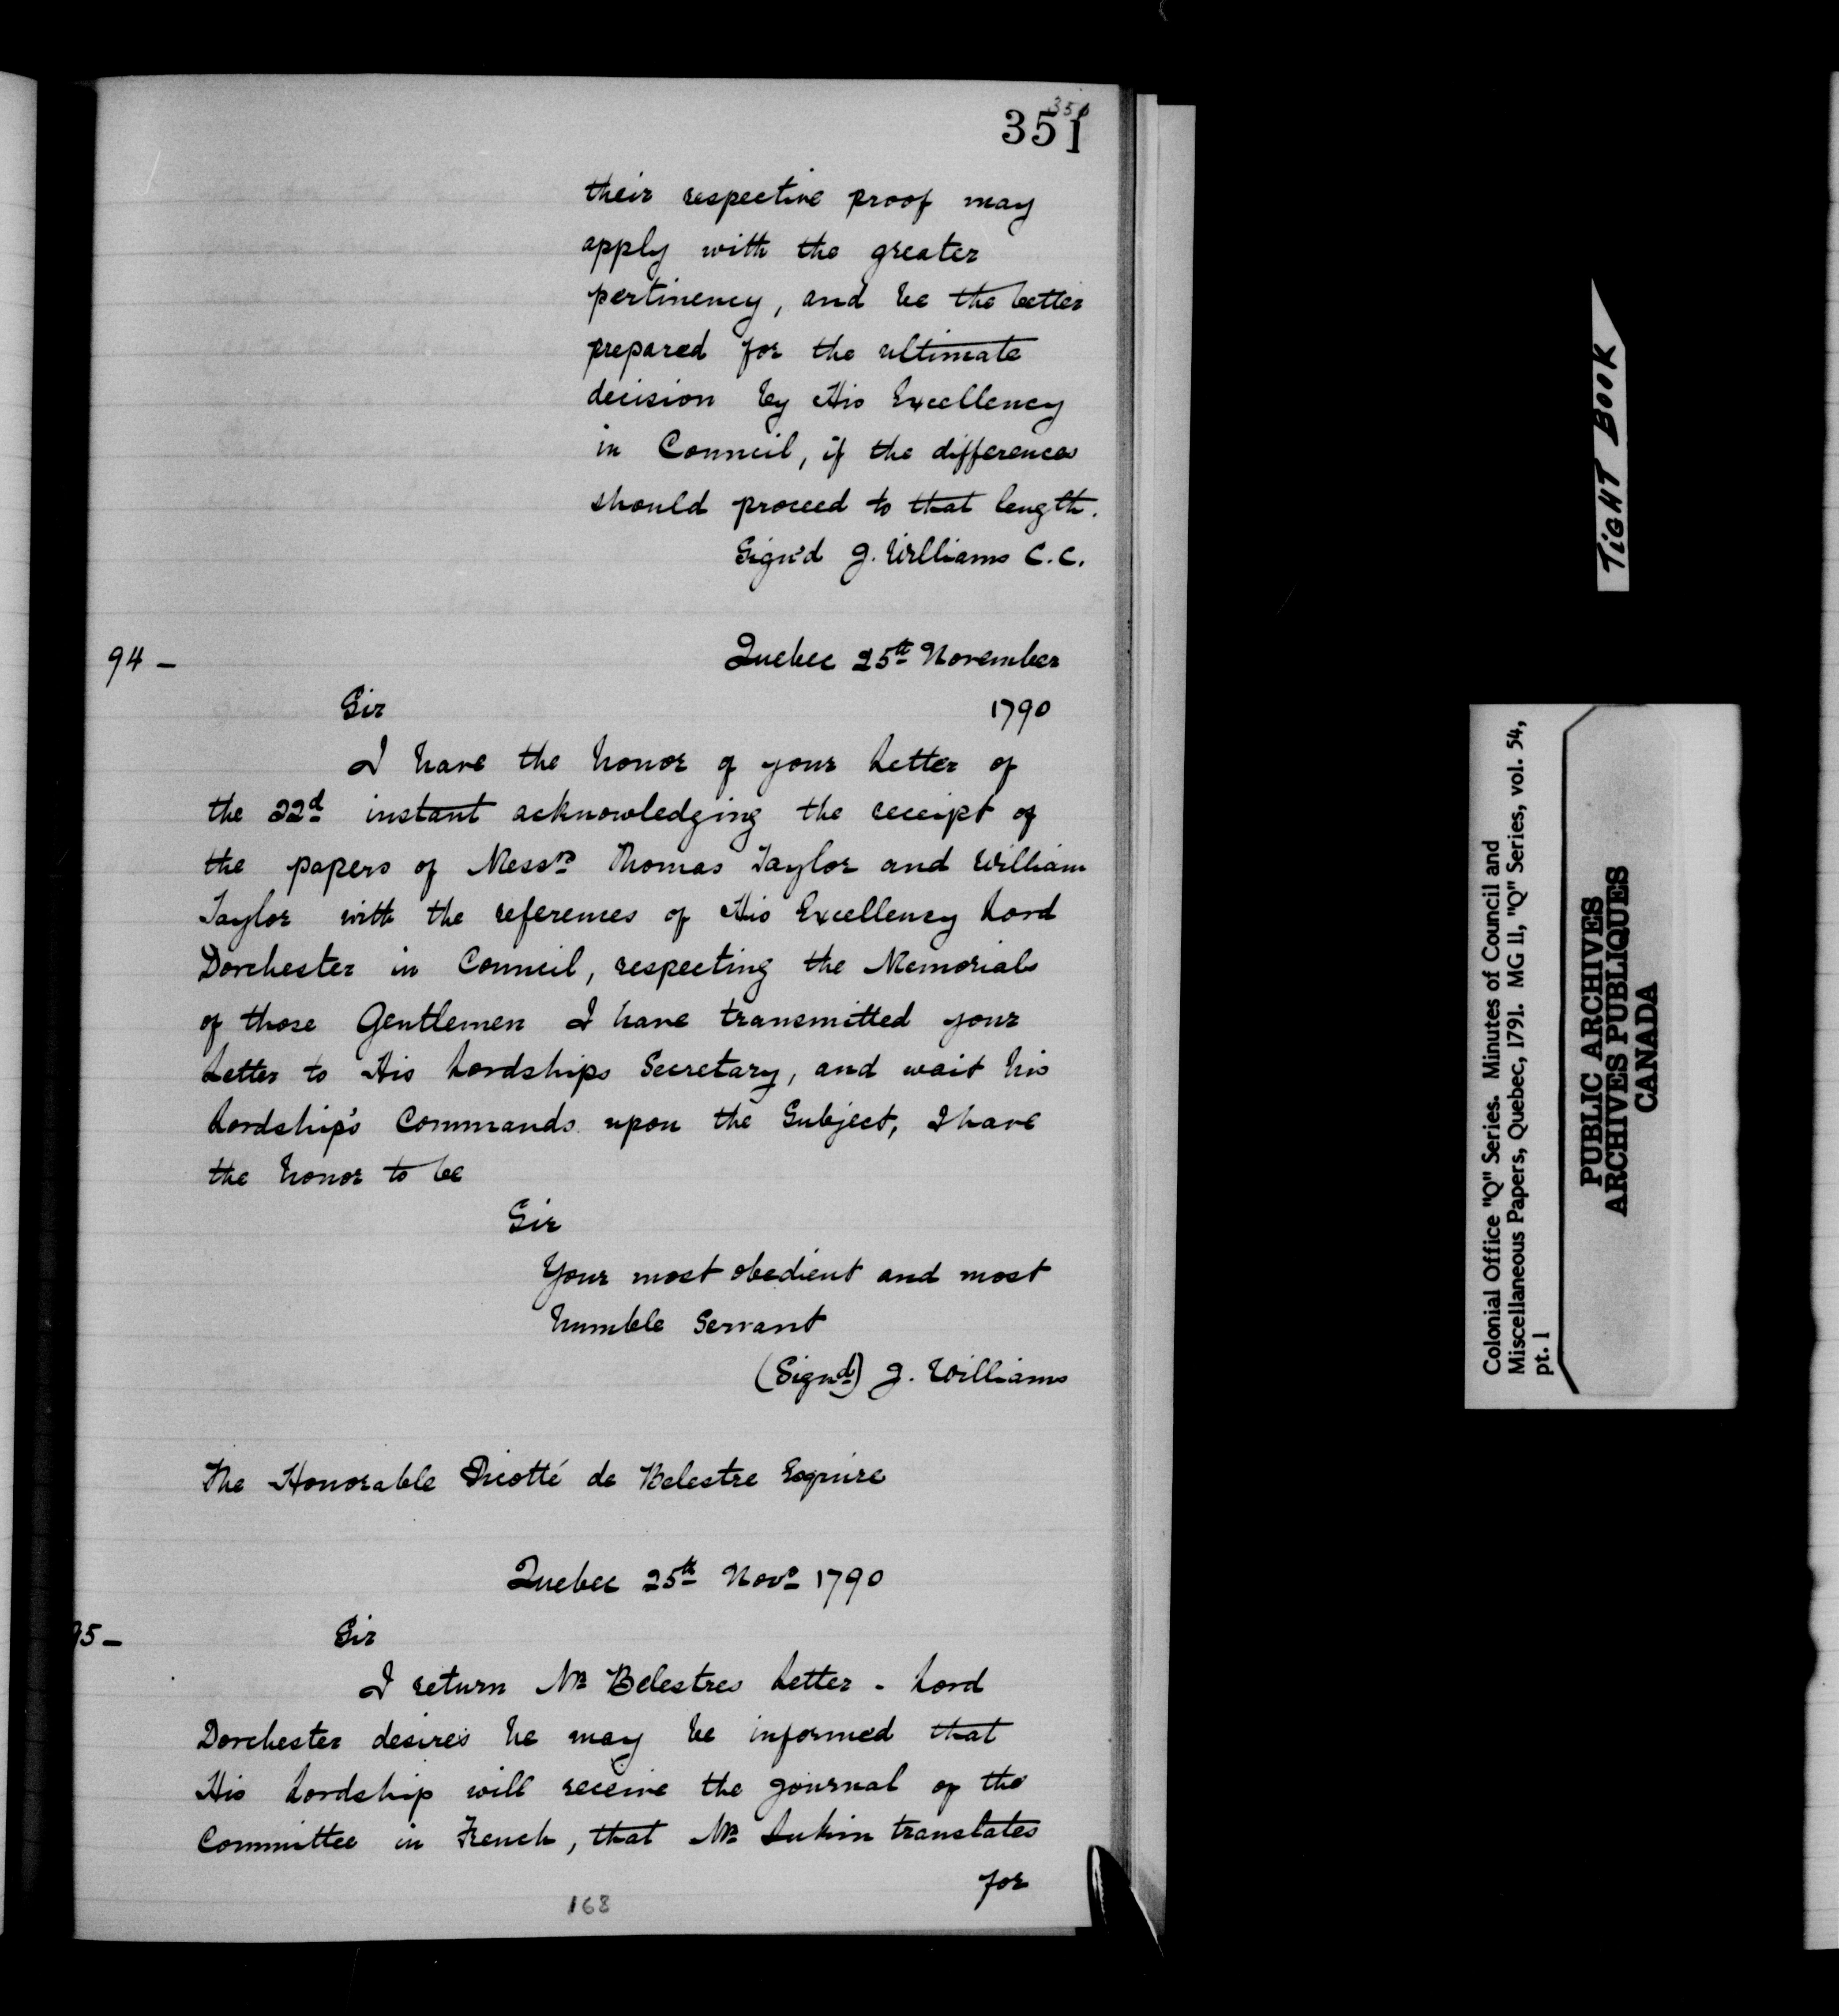 350
351
their respective proof may
apply with the greater
pertinency, and be the better
prepared for the ultimate
decision by His Excellency
in Council, if the differences
should proceed to that length.
Sign'd J. Williams C.C.
94 –
Quebec 25th November
1790
Sir
I have the honor of your Letter of
the 22d instant acknowledging the receipt of
the papers of Messrs Thomas Taylor and William
Taylor with the references of His Excellency Lord
Dorchester in Council, respecting the Memorials
of those Gentlemen I have transmitted your
Letter to His Lordships Secretary, and wait his
Lordship's Commands upon the Subject, I have
the honor to be
Sir
Your most obedient and most
humble Servant
(Signd) J. Williams
The Honorable Picotté de Belestre Esquire
Quebec 25th Novr 1790
95 –
Sir
I return Mr Belestres Letter - Lord
Dorchester desires he may be informed that
His Lordship will receive the journal of the
Committee in French, that Mr Lukin translates
for
168
TIGHT BOOK
Colonial Office "Q" Series. Minutes of Council and
Miscellaneous Papers, Quebec, 1791. MG 11, "Q" Series, vol. 54,
pt. 1
PUBLIC ARCHIVES
ARCHIVES PUBLIQUES
CANADA